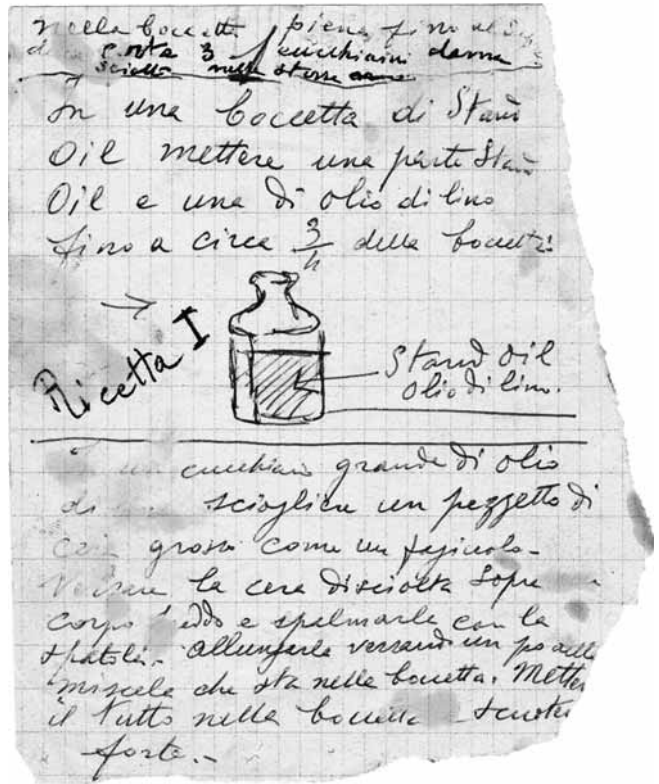 nella boccetta piena fino al
porta 3 cucchiaini damar
sciolta nella stessa
In una boccetta di Stand
Oil mettere una parte Stand
Oil e una di olio di lino
fino a circa 3/4 della boccetta
→ Ricetta I
Stand oil
olio di lino.
un cucchiaio grande di olio
di sciogliere un pezzetto di
cera grosso come un fagiuolo -
Versare la cera disciolta sopra
corpo freddo e spalmarla con la
spatola. - allungarla versandi un po della
miscela che sta nella boccetta. Metter
il tutto nella boccetta scuoter
forte. -